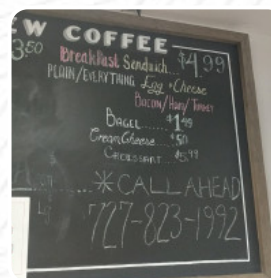 W COFFEE
3.50
Breakfast Sandwich.... $4.99
PLAIN/EVERYTHING Egg + Cheese
BACON/HAM/TURKEY
BAGEL....... $1.99
Cream Cheese
CROISSANT
* CALL AHEAD
727-823-1992